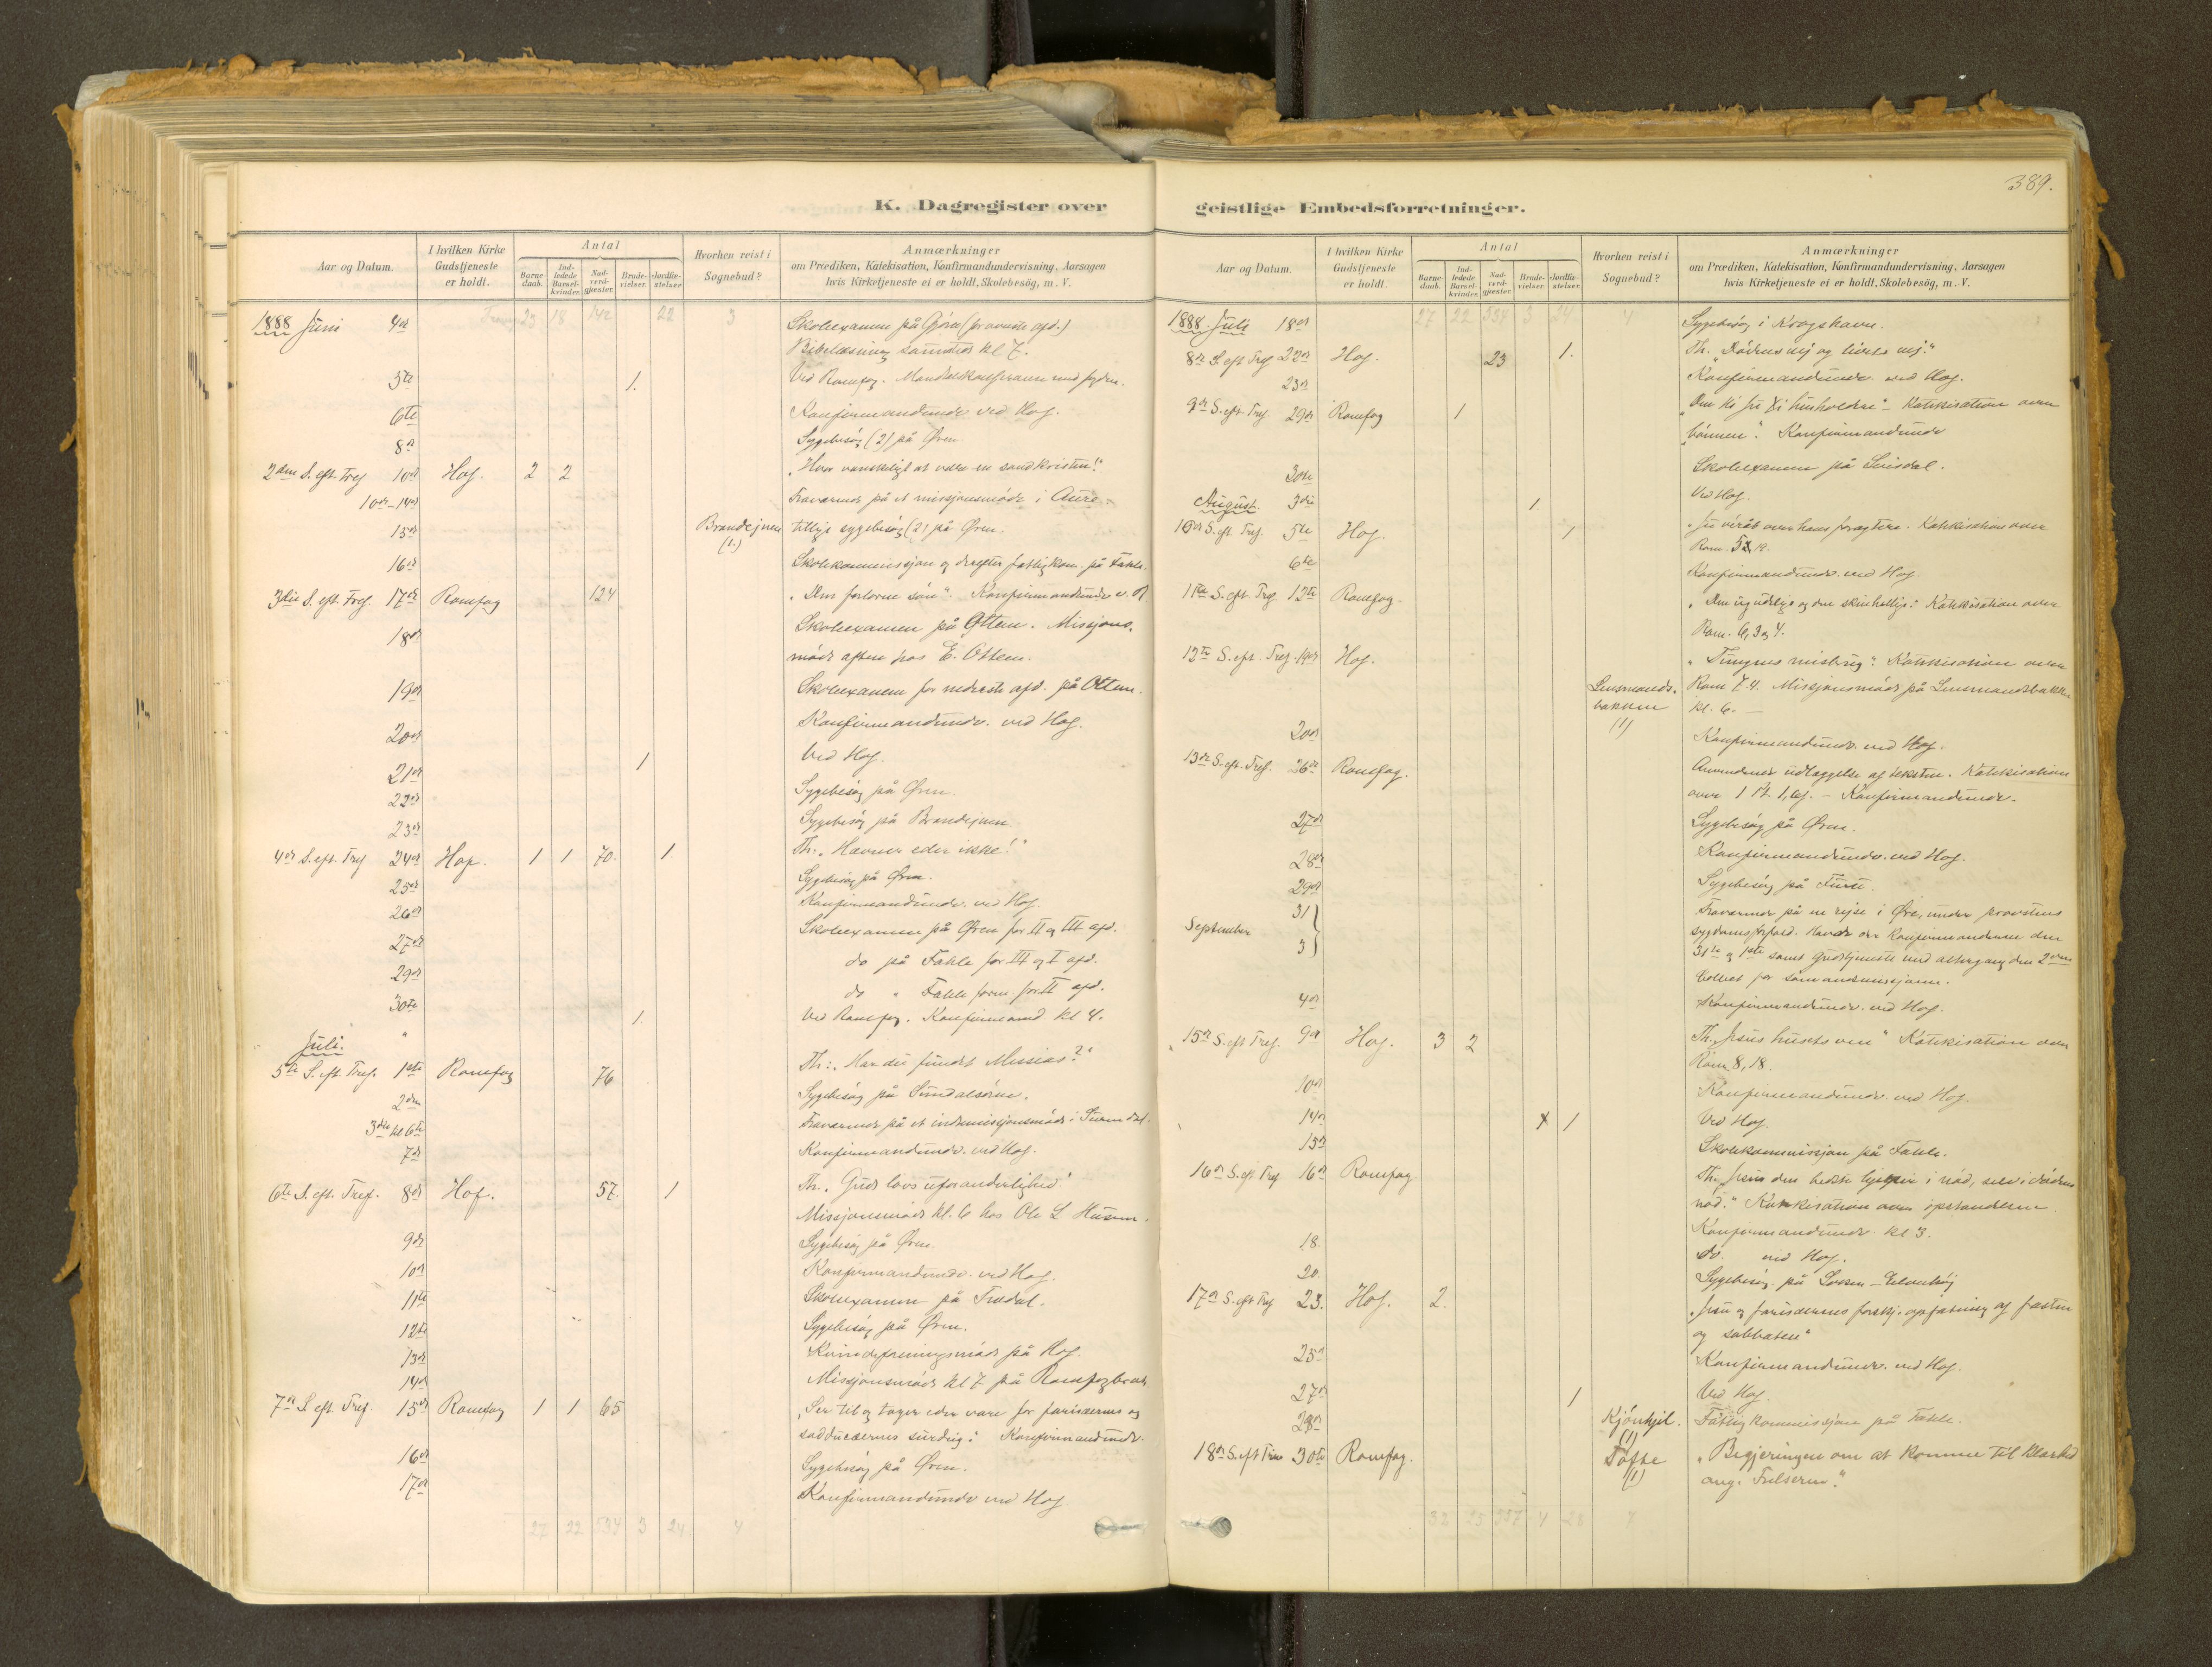 K. Dagregister over
Aar og Datum.
I hvilken Kirke Gudstjeneste er holdt.
Antal
Barnedaab.
Indledede Barselkvinder.
Nadverdgjæster.
Brudevielser.
Jordfæstelser.
Hvorhen reist i Sognebud?
Anmærkninger
om Prædiken, Katekisation, Konfirmandundervisning, Aarsagen
hvis Kirketjeneste ei er holdt, Skolebesøg, m. V.
23 18 142 22 3
1888 Juni 4de Skoleexamen på Gjøra (for øverste afd.)
Bibellæsning sammesteds kl 7.
5te 1. Ved Romfog.
6te Konfirmandundv. ved Hof.
8de Sygebesøg (2) på Øren
2den S. eft. Tref 10de Hof. 2 2 "Hvor vanskeligt at være en sand kristen!"
10de-14de Fraværende på et missjonsmøde i Aure
15de Brandejnen (1.) tillige sygebesøg (2) på Øren.
16de Skolekommissjon og derefter fattigkom. på Fahle.
3die S. eft. Tref. 17de Romfog 124 "Den forlorne søn". Konfirmandundv.
18de Skoleexamen på Ottem. Missjons-
møde aften hos E. Ottem.
19de Skoleexamen for nederste afd. på Ottem.
20de Konfirmandundv. ved Hof.
21de 1 Ved Hof.
22de Sygebesøg på Øren.
23de Sygebesøg på Brandejnen.
4de S. eft. Tref 24de Hof. 1 1 70. 1. Th: "Hævner eder ikke!"
25de Sygebesøg på Øren.
26de Konfirmandundv. ved Hof.
27de Skoleexamen på Øren for II og III afd.
29de do på Fahle for III og I afd.
30te do " Fahle for II afd.
" 1. Ved Romfog. Konfirmand. kl 4.
Juli.
5te S. eft. Tref. 1ste Romfog 76 Th: "Har du fundet Messias?"
2den Sygebesøg på Sundalsøren.
3die til 6te Fraværende på et indremissjonsmøde i Surendal.
7de Konfirmandundv. ved Hof.
6te S. eft. Tref. 8de Hof. 57. 1 Th. "Guds lovs uforanderlighed."
Missjonsmøde kl. 6 hos Ole L Husum.
9de Sygebesøg på Øren.
10de Konfirmandundv. ved Hof.
11te Skoleexamen på Tredal.
12te Sygebesøg på Øren.
13de Kvindeforeningsmøde på Hof.
14de Missjonsmøde kl 7 på Romfog
7de S. eft. Tref. 15de Romfog 1 1 65 "Ser til og tager eder vare for farisæernes og
sadducæernes surdeig". Konfirmandundv.
16de Sygebesøg på Øren.
17de Konfirmandundv ved Hof
27 22 534 3 24 4
389.
geistlige Embedsforretninger.
Aar og Datum.
I hvilken Kirke Gudstjeneste er holdt.
Antal
Barnedaab.
Indledede Barselkvinder.
Nadverdgjæster.
Brudevielser.
Jordfæstelser.
Hvorhen reist i Sognebud?
Anmærkninger
om Prædiken, Katekisation, Konfirmandundervisning, Aarsagen
hvis Kirketjeneste ei er holdt, Skolebesøg, m. V.
27 22 534 3 24 4
1888 Juli 18de Sygebesøg i Krogshavn.
8de S. eft Tref 22de Hof. 23 1. Th. "Dødens vej og livets vej."
23de Konfirmandundv. ved Hof.
9de S. eft. Tref. 29de Romfog 1 husholdere" - Katekisation over
"bønnen". Konfirmandundv
30te Skoleexamen på
August. 3die 1 Ved Hof.
10de S. eft. Tref. 5te Hof. 1 over hans foragtere. Katekisation over
Rom. 5
6te Konfirmandundv. ved Hof.
11te S. eft. Tref. 12te Romfog. "Den ugudelige og den skinhellige". Katekisation over
Rom. 6, 3 og 4.
12te S. eft. Tref. 19de Hof. "Tungens misbrug". Katekisation over
Lensmandsbakken (1) Rom 7.4. Missjonsmøde på Lensmandsbakken
kl. 6. —
20de Konfirmandundv. ved Hof.
13de S. eft. Tref. 26de Romfog. Anvendende udlæggelse af teksten. Katekisation
over 1 - Konfirmandundv.
27de Sygebesøg på Øren.
28de Konfirmandundv. ved Hof.
29de Sygebesøg på Furu.
September 31 3 Fraværende på en rejse i Øre, under provstens
sygdomsforfald. Havde der konfirmanderne den
31te og 1ste samt Gudstjeneste med altergang den 2den
for sømandsmissjonen.
4de Konfirmandundv. ved Hof.
15de S. eft Tref. 9de Hof. 3 2 Th. "Jesus husets ven" Katekisation over
Rom 8, 18.
10de Konfirmandundv ved Hof
14de 1 Ved Hof.
15de Skolekommissjon på Fahle.
16de S. eft Tref 16de Romfog Th. "Jesus den bedste hjælper i nød, selv i dødens
nød." Katekisation over opstandelsen.
Konfirmandundv. kl 3.
18. do. ved Hof.
20. Sygebesøg på
17de S. eft Tref 23. Hof. 2. "Jesu og farisæernes forskj. opfatning af fasten
og sabbaten"
25de Konfirmandundv. ved Hof.
27de 1 Ved Hof.
28de Kjønhjil. (1) Fattigkommissjon på Fahle.
18de S. eft Tref 30te Romfog. Tofte (1) "Begjæringen om at komme til klarhed
ang. Frelseren".
32 25 557 4 28 7